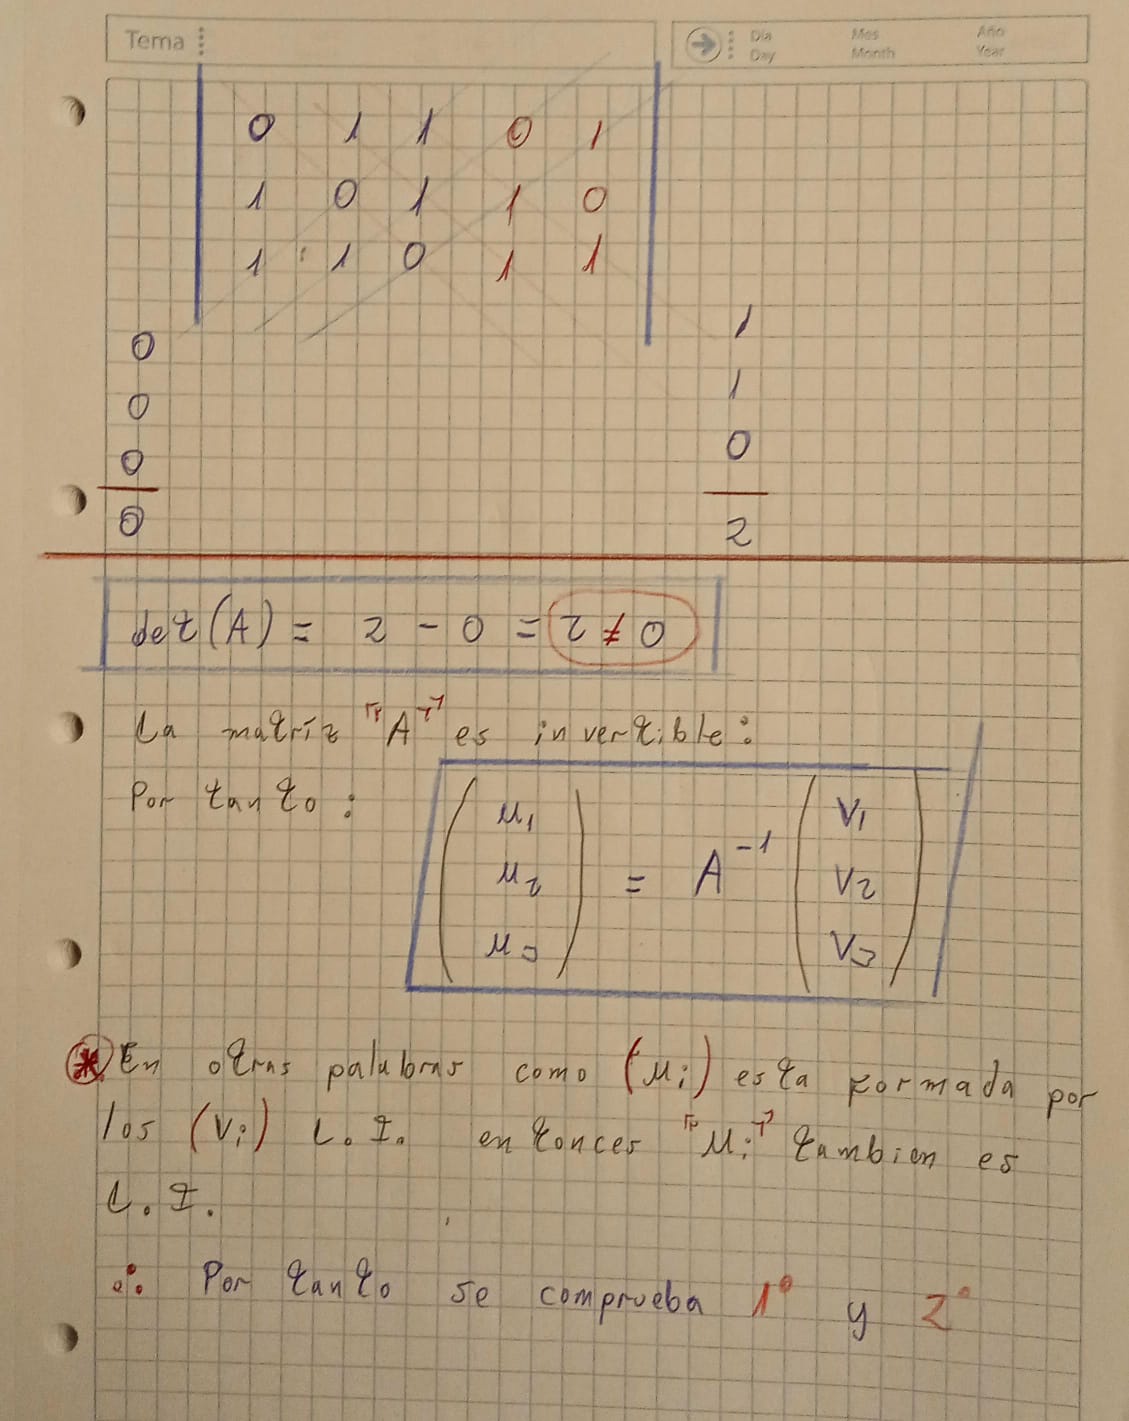 Tema
Día Mes Año
Day Month Year
0 1 1 0 1
1 0 1 1 0
1 1 0 1 1
0 1
0 1
0 0
0 2
det(A) = 2 - 0 = 2 ≠ 0
La matriz "A" es invertible:
Por tanto:
μ1 V1
μ2 = A⁻¹ V2
μ3 V3
* En otras palabras como (μi) esta formada por
los (Vi) L.I. entonces "μi" tambien es
L.I.
∴ Por tanto se comprueba 1° y 2°